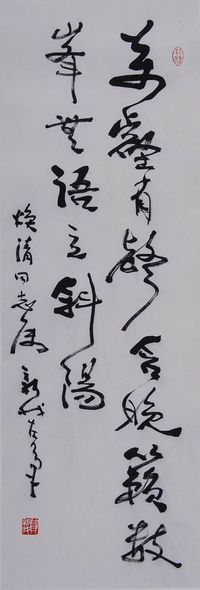 萬壑有聲含晚籟數
峯無語立斜陽
焕清同志属